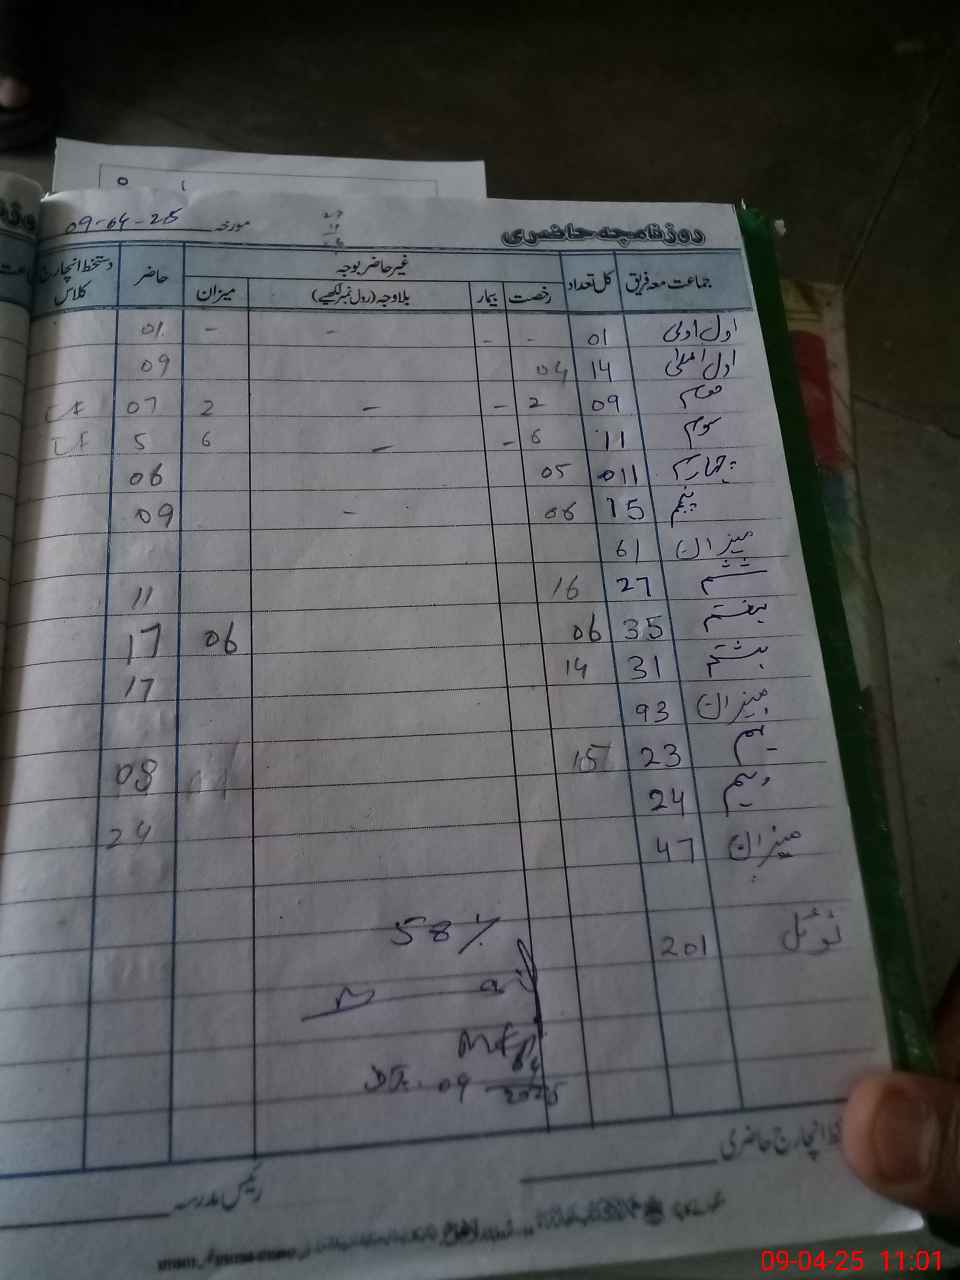 روزنامچہ حاضری مورخہ 09-04-25
جماعت معہ فریق کل تعداد غیر حاضر بوجہ حاضر دستخط انچارج کلاس
رخصت بیمار بلاوجہ (رول نمبر لکھیے) میزان
اول ادنیٰ 01 - - - - 01
اول اعلیٰ 14 04 09
09 2 - - 2 07
سوم 11 6 - - 6 5
چہارم 011 05 06
پنجم 15 06 - 09
میزان 61
ششم 27 16 11
ہفتم 35 06 06 17
ہشتم 31 14 17
میزان 93
نہم 23 15 08
دہم 24 24
میزان 47
ٹوٹل 201
58 %
Dt. 09
04
2025
انچارج حاضری
رئیس مدرسہ
09-04-25 11:01